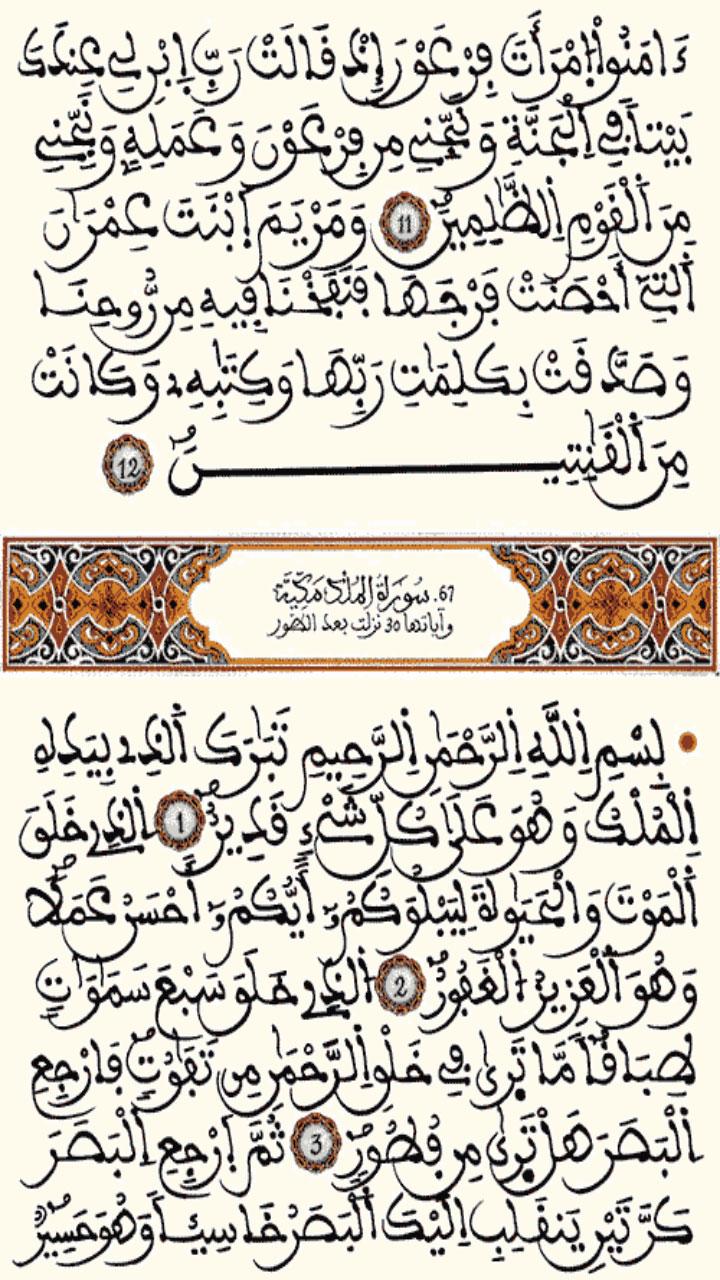 ءَامَنُواْ اُمْرَأَتَ فِرْعَوْنَ إِذْ قَالَتْ رَبِّ اِبْنِ لِے عِندَكَ
بَيْتاٗ فِے اِ۬لْجَنَّةِ وَنَجِّنِے مِن فِرْعَوْنَ وَعَمَلِهِۦ وَنَجِّنِے
مِنَ اَ۬لْقَوْمِ اِ۬لظَّٰلِمِينَۖ 11 وَمَرْيَمَ اَ۪بْنَتَ عِمْرَٰنَ
اَ۬لتِےٓ أَحْصَنَتْ فَرْجَهَا فَنَفَخْنَا فِيهِ مِن رُّوحِنَا
وَصَدَّقَتْ بِكَلِمَٰتِ رَبِّهَا وَكِتَٰبِهِۦ وَكَانَتْ
مِنَ اَ۬لْقَٰنِتِينَۖ 12
67. سُورَةُ الْمُلْكِ مَكِّيَّة
وآياتها 30 نزلت بعد الطور
بِسْمِ اِ۬للَّهِ اِ۬لرَّحْمَٰنِ اِ۬لرَّحِيمِ تَبَٰرَكَ اَ۬لذِے بِيَدِهِ
اِ۬لْمُلْكُ وَهُوَ عَلَىٰ كُلِّ شَےْءٖ قَدِيرٌۖ 1 اَ۬لذِے خَلَقَ
اَ۬لْمَوْتَ وَالْحَيَوٰةَ لِيَبْلُوَكُمُۥٓ أَيُّكُمُۥٓ أَحْسَنُ عَمَلاٗۖ
وَهُوَ اَ۬لْعَزِيزُ اُ۬لْغَفُورُۖ 2 اُ۬لذِے خَلَقَ سَبْعَ سَمَٰوَٰتٖ
طِبَاقاٗۖ مَّا تَر۪يٰ فِے خَلْقِ اِ۬لرَّحْمَٰنِ مِن تَفَٰوُتٖۖ فَارْجِعِ
اِ۬لْبَصَرَ هَلْ تَر۪يٰ مِن فُطُورٖۖ 3 ثُمَّ اَ۪رْجِعِ اِ۬لْبَصَرَ
كَرَّتَيْنِ يَنقَلِبِ اِلَيْكَ اَ۬لْبَصَرُ خَاسِيـاٗ وَهُوَ حَسِيرٌۖ